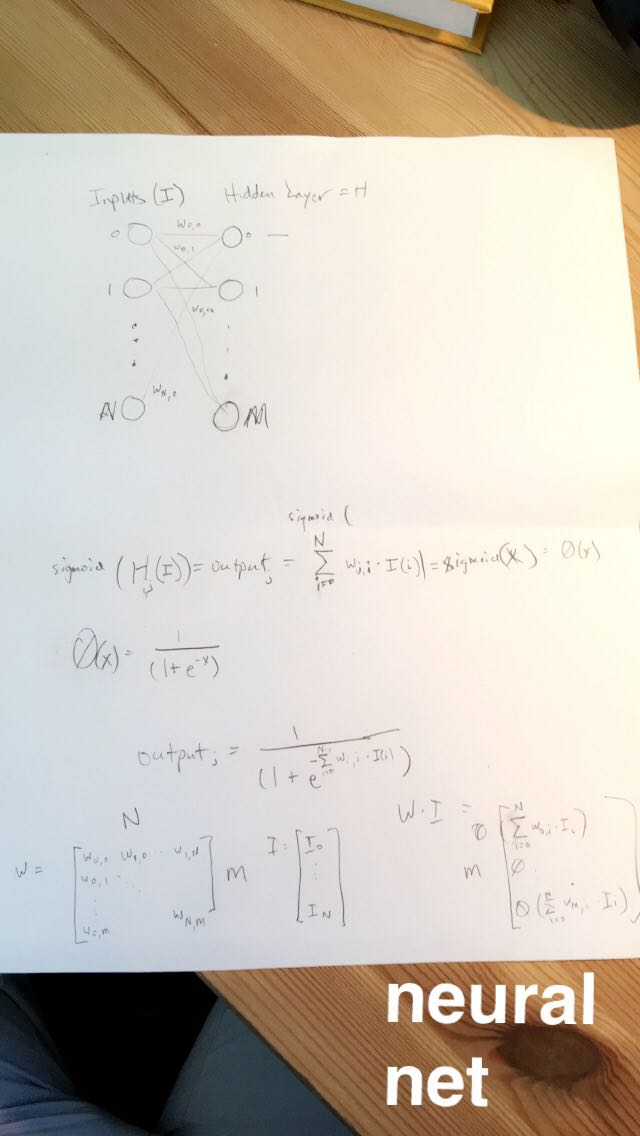 Inputs (I) Hidden Layer = H
0 w0,0 0
w0,1
1 1
w0,m
wN,0
N M
sigmoid (
sigmoid (Hj(I)) = outputj = N∑i=0 wj,i · I(i) = sigmoid(x) = Ø(x)
Ø(x) = 1/(1+e^-x)
outputj = 1/(1+e^-∑i=0 wj,i · I(i))
N
W · I =
W = [w0,0 ··· w1,N
w0,1
w0,m wN,m] m
I = [I0
⋮
IN]
m Ø [N∑i=0 w0,i · Ii)
Ø
Ø (∑i=0 · Ii)]
neural
net